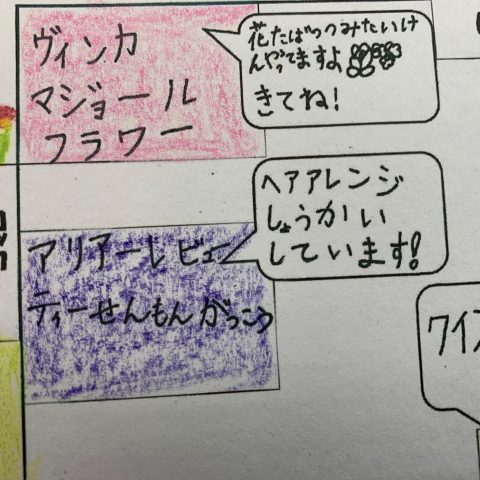 ヴィンカ
マジョール
フラワー
花たばつつみたいけ
んやってますよ
きてね!
アリアーレビュー
ティーせんもんがっこう
ヘアアレンジ
しょうかい
しています!
ワイス